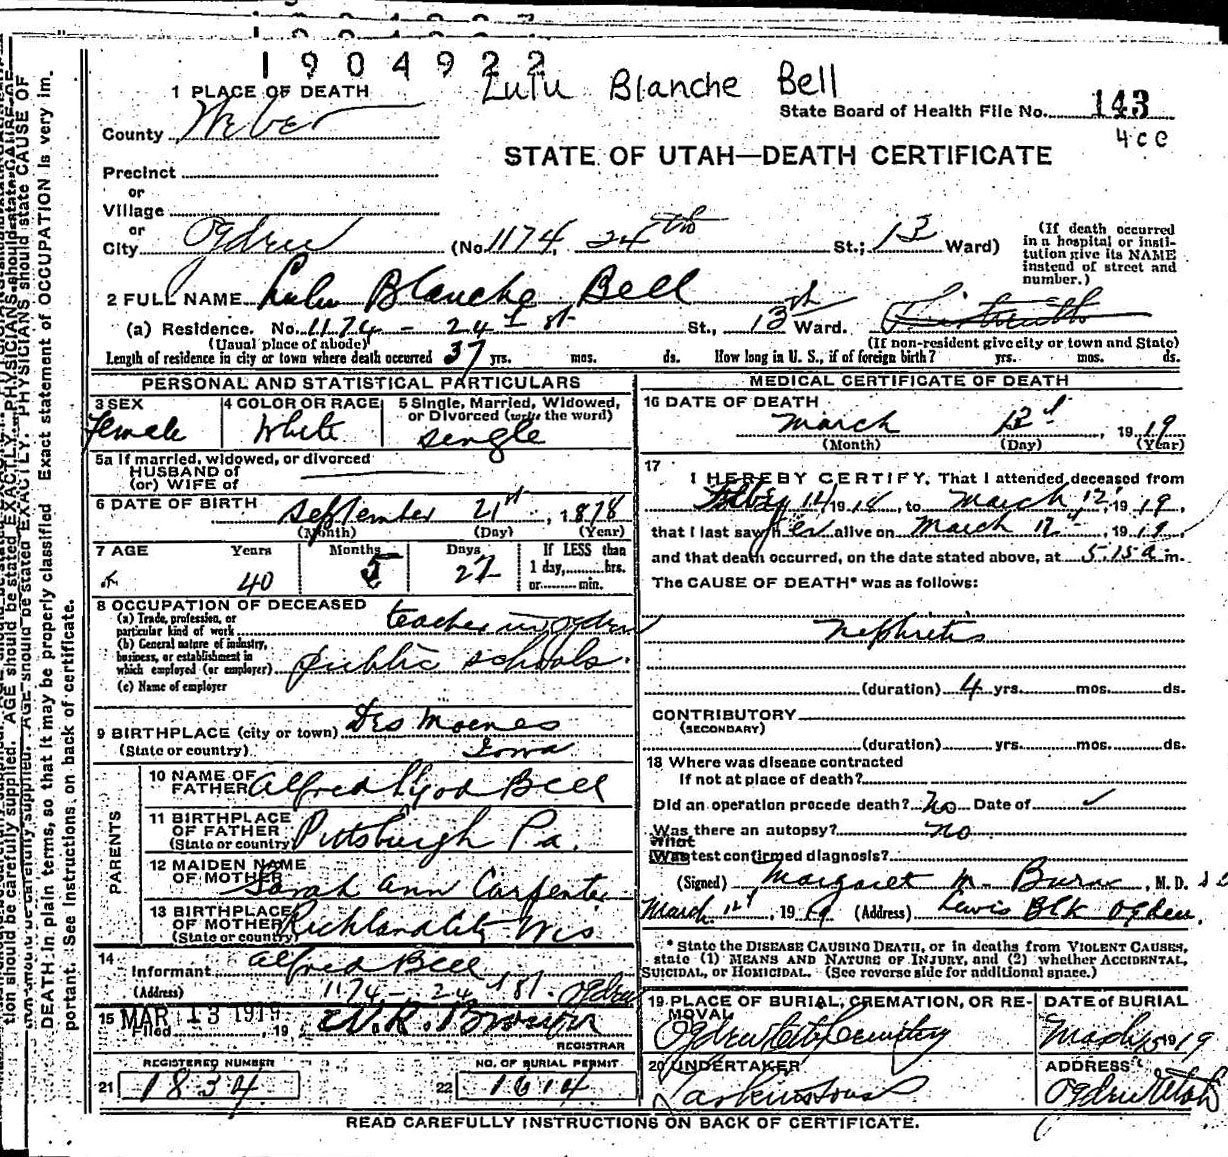 1904922
Lulu Blanche Bell
1 PLACE OF DEATH
State Board of Health File No. 143
County Weber
4cc
STATE OF UTAH—DEATH CERTIFICATE
Precinct
or
Village
or
City Ogden (No. 1174, 24th St.; 13 Ward)
(If death occurred in a hospital or institution give its NAME instead of street and number.)
2 FULL NAME Lulu Blanche Bell
(a) Residence. No. 1174 - 24th St St., 13th Ward.
(Usual place of abode) (If non-resident give city or town and State)
Length of residence in city or town where death occurred 37 yrs. mos. ds. How long in U. S., if of foreign birth? yrs. mos. ds.
PERSONAL AND STATISTICAL PARTICULARS
3 SEX Female
4 COLOR OR RACE White
5 Single, Married, Widowed, or Divorced (write the word) single
5a If married, widowed, or divorced
HUSBAND of
(or) WIFE of
6 DATE OF BIRTH September 21st, 1878
(Month) (Day) (Year)
7 AGE Years Months Days If LESS than
40 5 1 day, hrs.
or min.
8 OCCUPATION OF DECEASED
(a) Trade, profession, or particular kind of work teacher in Ogden
(b) General nature of industry, business, or establishment in which employed (or employer) public schools.
(c) Name of employer
9 BIRTHPLACE (city or town) Des Moenes
(State or country) Iowa
PARENTS
10 NAME OF FATHER Alfred Bell
11 BIRTHPLACE OF FATHER (State or country) Pittsburgh Pa.
12 MAIDEN NAME OF MOTHER Sarah Ann Carpenter
13 BIRTHPLACE OF MOTHER (State or country) Richland City Wis
14 Informant Alfred Bell
(Address) 1174 - 24th St. Ogden
15 Filed MAR 13 1919, 19 Brown
REGISTRAR
REGISTERED NUMBER
21 1834
NO. OF BURIAL PERMIT
22 1614
MEDICAL CERTIFICATE OF DEATH
16 DATE OF DEATH
March 12, 1919
(Month) (Day) (Year)
17 I HEREBY CERTIFY, That I attended deceased from
, to March 12, 1919,
that I last saw her alive on March 12, 1919,
and that death occurred, on the date stated above, at 5 15 a m.
The CAUSE OF DEATH* was as follows:
Nephretis
(duration) 4 yrs. mos. ds.
CONTRIBUTORY
(SECONDARY)
(duration) yrs. mos. ds.
18 Where was disease contracted
If not at place of death?
Did an operation precede death? No Date of ✓
Was there an autopsy? no
What test confirmed diagnosis?
(Signed) Margaret M. , M. D.
March 12, 1919 (Address) Lewis Blk Ogden.
* State the DISEASE CAUSING DEATH, or in deaths from VIOLENT CAUSES, state (1) MEANS AND NATURE OF INJURY, and (2) whether ACCIDENTAL, SUICIDAL, or HOMICIDAL. (See reverse side for additional space.)
19 PLACE OF BURIAL, CREMATION, OR REMOVAL
Ogden City Cemetery
DATE of BURIAL
March 15 1919
20 UNDERTAKER
Larkin & Sons
ADDRESS
Ogden Utah
READ CAREFULLY INSTRUCTIONS ON BACK OF CERTIFICATE.
tion should be carefully supplied. AGE should be stated EXACTLY. PHYSICIANS should state CAUSE OF
DEATH in plain terms, so that it may be properly classified. Exact statement of OCCUPATION is very im-
portant. See Instructions on back of certificate.